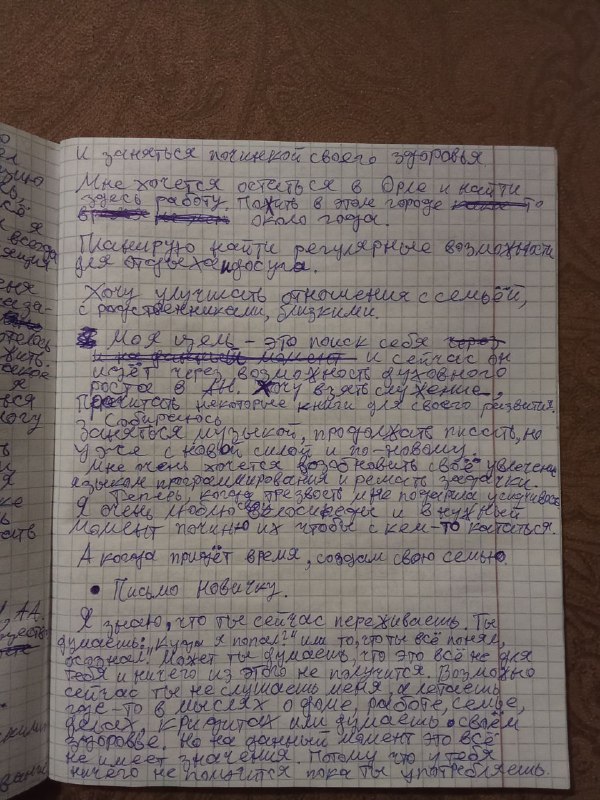 и заняться починкой своего здоровья
Мне хочется остаться в Орле и найти
здесь работу. Пожить в этом городе
около года.
Планирую найти регулярные возможности
для отдыха и досуга.
Хочу улучшать отношения с семьёй,
с родственниками, близкими.
Моя цель – это поиск себя через
и на данный момент и сейчас он
идёт через возможность духовного
роста в АН. Хочу взять служение,
Прочитать некоторые книги для своего развития.
Собираюсь
Заняться музыкой, продолжать писать, но
уже с новой силой и по-новому.
Мне очень хочется возобновить своё увлечение
языком программирования и решать задачки.
Теперь, когда трезвость мне подарила усидчивость
Я очень люблю велосипеды и в нужный
момент починю их чтобы с кем-то кататься.
А когда придёт время, создам свою семью.
• Письмо Новичку.
Я знаю, что ты сейчас переживаешь. Ты
думаешь: „Куда я попал?" или то, что ты всё понял,
осознал. Может ты думаешь, что это всё не для
тебя и ничего из этого не получится. Возможно
сейчас ты не слушаешь меня, а летаешь
где-то в мыслях о доме, работе, семье,
делах, кридитах или думаешь о своём
здоровье. Но на данный момент это всё
не имеет значения. Потому что у тебя
ничего не получится пока ты употребляешь.